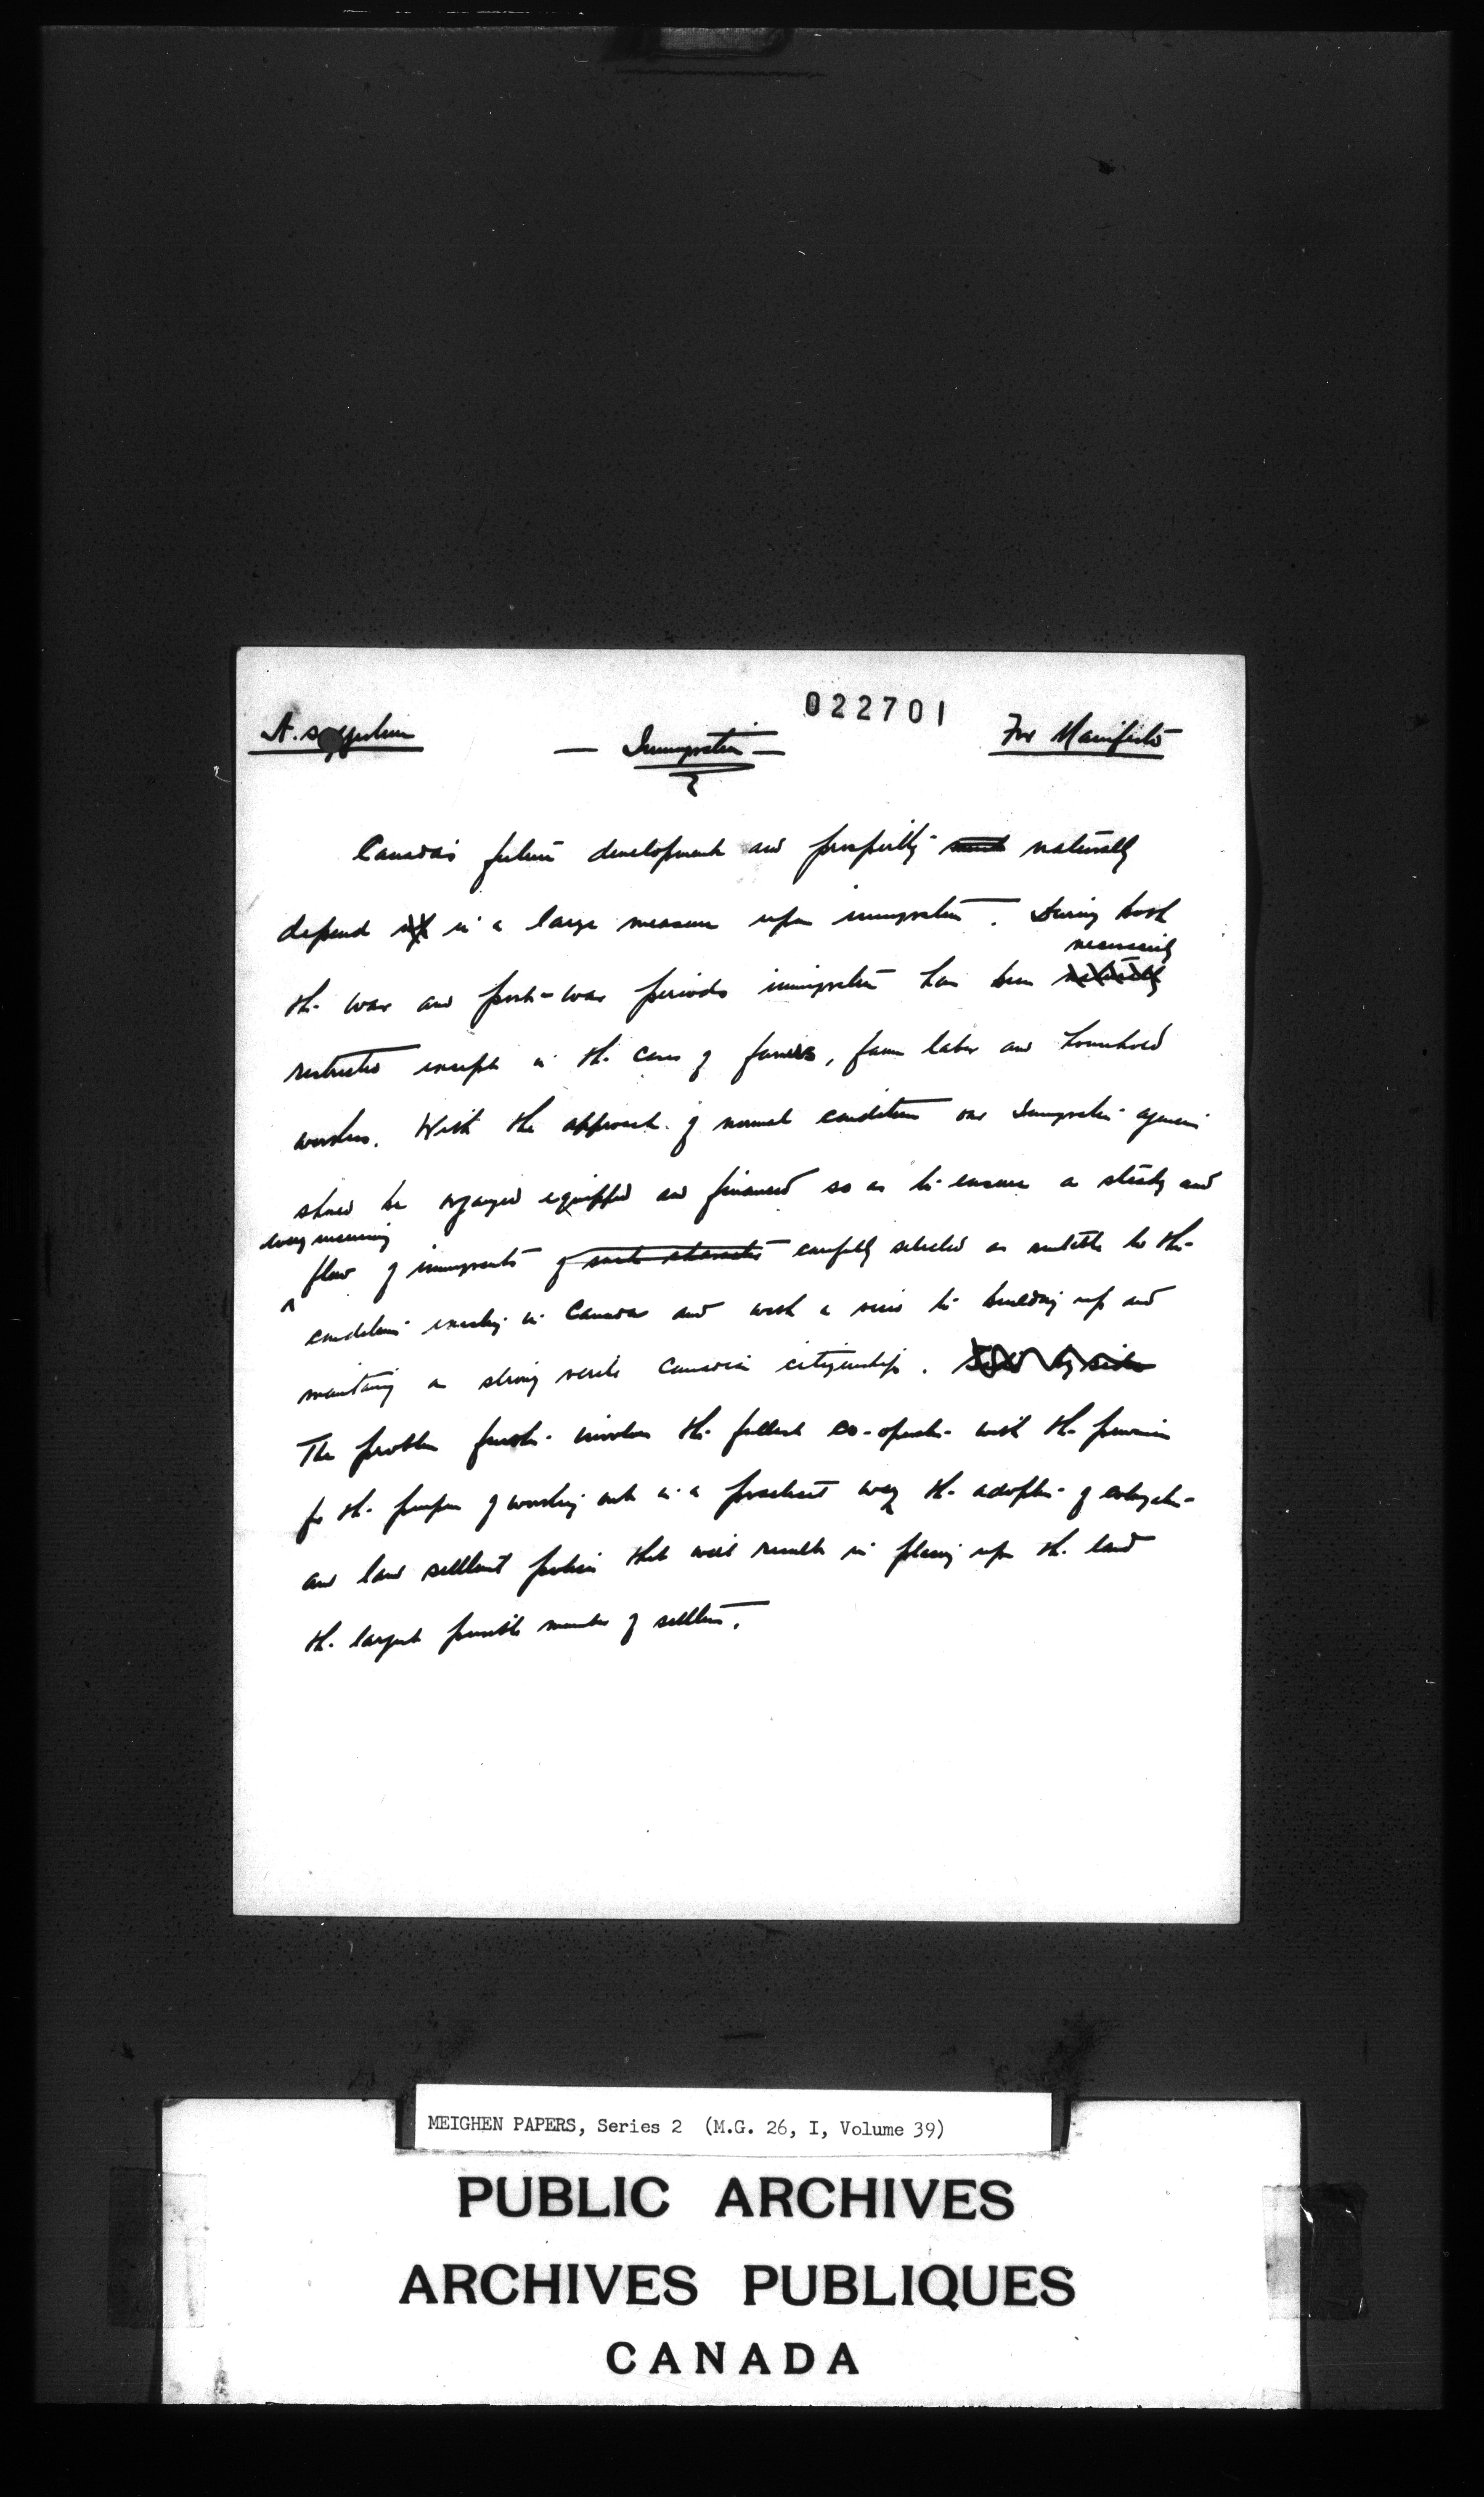 022701
A. suggestion — Immigration — For Manifesto
Canada's future development and prosperity must naturally
depend in a large measure upon immigration. During both
necessarily
the war and post-war periods immigration has been naturally
restricted except in the cases of farmers, farm labor and household
workers. With the approach of normal conditions our Immigration agencies
should be organized equipped and financed so as to ensure a steady and
flow of immigrants of such character carefully selected as suitable to the
conditions existing in Canada and with a view to building up and
maintaining a strong virile Canadian citizenship. Side by side
The problem further involves the fullest co-operation with the provinces
for the purpose of working out in a practical way the adoption of colonization
and land settlement policies that will result in placing upon the land
the largest possible number of settlers.
MEIGHEN PAPERS, Series 2 (M.G. 26, I, Volume 39)
PUBLIC ARCHIVES
ARCHIVES PUBLIQUES
CANADA